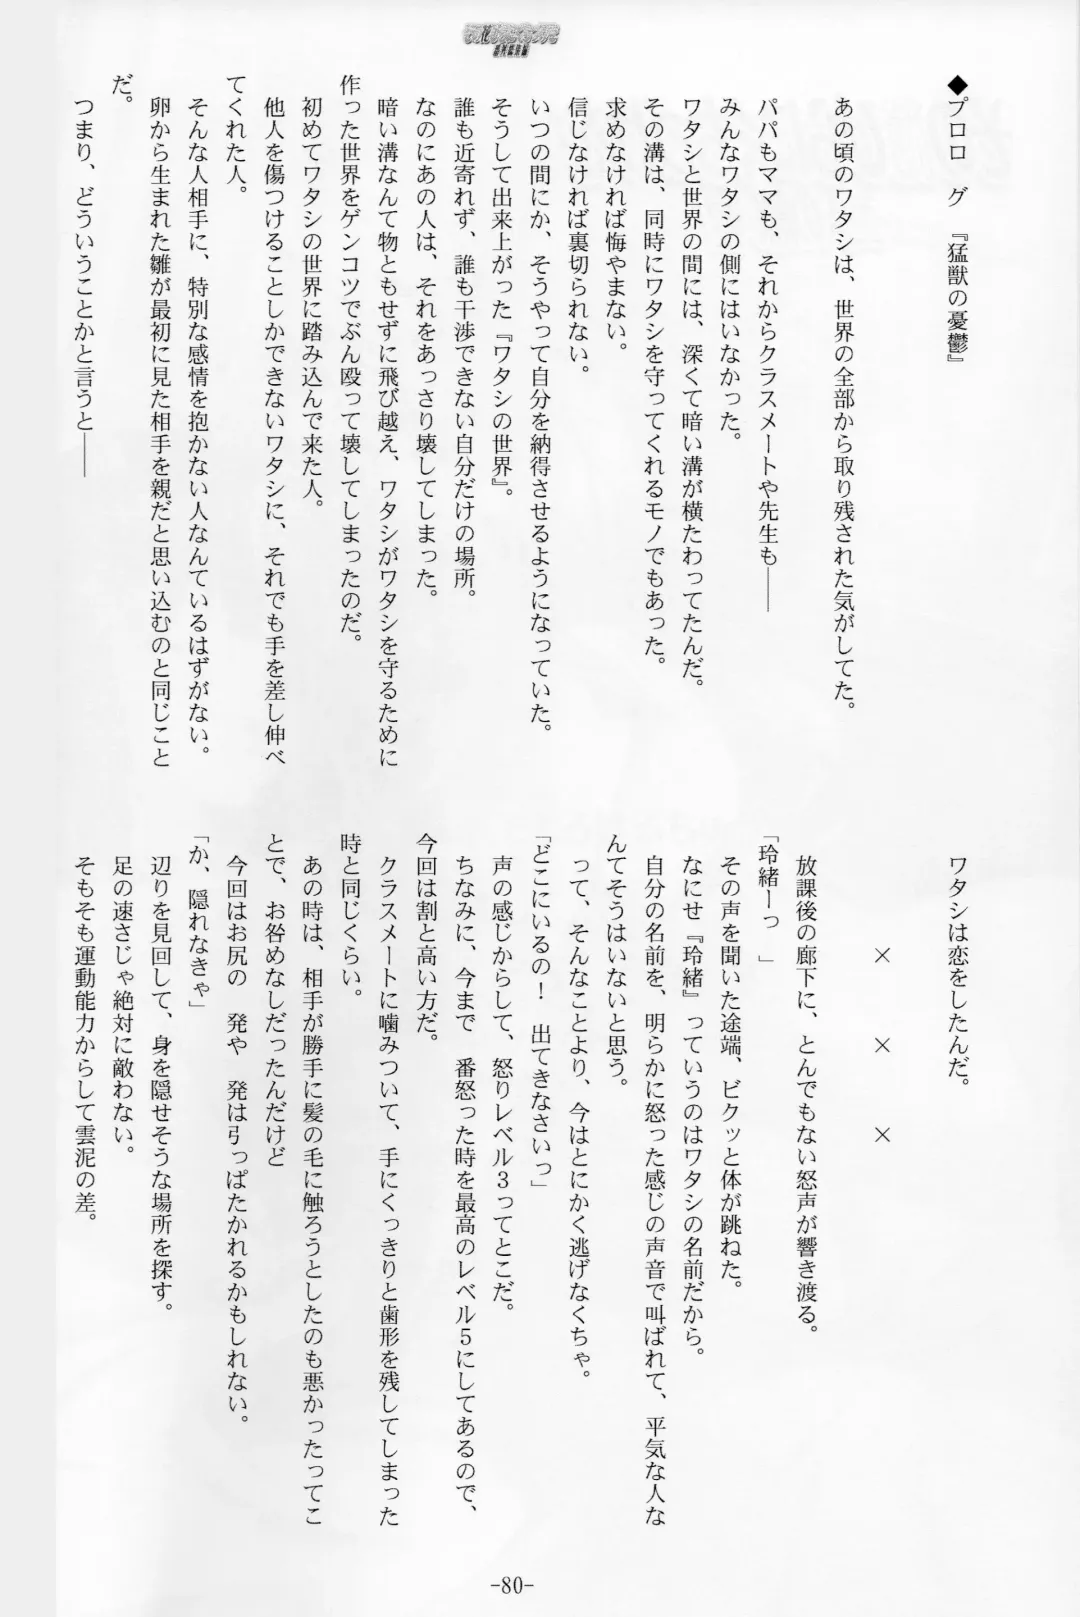 ◆プロロ　グ　『猛獣の憂鬱』
あの頃のワタシは、世界の全部から取り残された気がしてた。
パパもママも、それからクラスメートや先生も――
みんなワタシの側にはいなかった。
ワタシと世界の間には、深くて暗い溝が横たわってたんだ。
その溝は、同時にワタシを守ってくれるモノでもあった。
求めなければ悔やまない。
信じなければ裏切られない。
いつの間にか、そうやって自分を納得させるようになっていた。
そうして出来上がった『ワタシの世界』。
誰も近寄れず、誰も干渉できない自分だけの場所。
なのにあの人は、それをあっさり壊してしまった。
暗い溝なんて物ともせずに飛び越え、ワタシがワタシを守るために
作った世界をゲンコツでぶん殴って壊してしまったのだ。
初めてワタシの世界に踏み込んで来た人。
他人を傷つけることしかできないワタシに、それでも手を差し伸べ
てくれた人。
そんな人相手に、特別な感情を抱かない人なんているはずがない。
卵から生まれた雛が最初に見た相手を親だと思い込むのと同じこと
だ。
つまり、どういうことかと言うと――
ワタシは恋をしたんだ。
×　×　×
放課後の廊下に、とんでもない怒声が響き渡る。
「玲緒ーっ　」
その声を聞いた途端、ビクッと体が跳ねた。
なにせ『玲緒』っていうのはワタシの名前だから。
自分の名前を、明らかに怒った感じの声音で叫ばれて、平気な人な
んてそうはいないと思う。
って、そんなことより、今はとにかく逃げなくちゃ。
「どこにいるの！　出てきなさいっ」
声の感じからして、怒りレベル３ってとこだ。
ちなみに、今まで　番怒った時を最高のレベル５にしてあるので、
今回は割と高い方だ。
クラスメートに噛みついて、手にくっきりと歯形を残してしまった
時と同じくらい。
あの時は、相手が勝手に髪の毛に触ろうとしたのも悪かったってこ
とで、お咎めなしだったんだけど
今回はお尻の　発や　発は引っぱたかれるかもしれない。
「か、隠れなきゃ」
辺りを見回して、身を隠せそうな場所を探す。
足の速さじゃ絶対に敵わない。
そもそも運動能力からして雲泥の差。
-80-